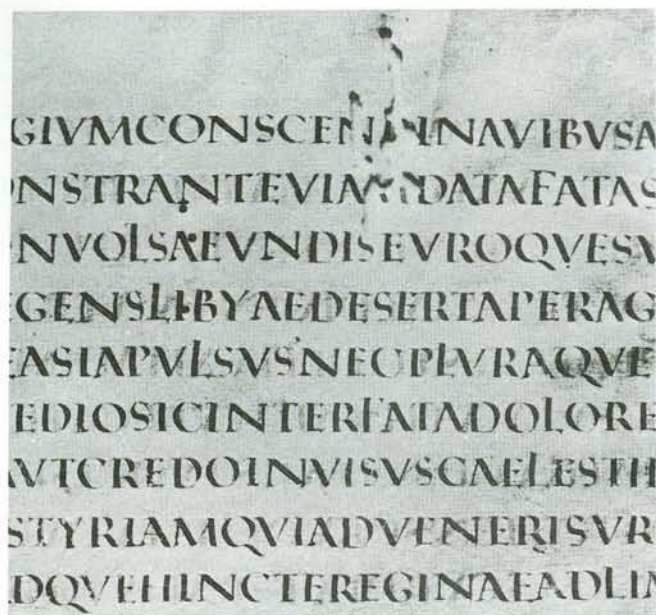 GIVMCONSCENDINAVIBVSA
ONSTRANTEVIAMDATAFATAS
ONVOLSAEVNDISEVROQVESV
EGENSLIBYAEDESERTAPERAG
EASIAPVLSVSNECPLVRAQVE
EDIOSICINTERFATADOLORE
AVTCREDOINVISVSCAELESTI
STYRIAMQVIADVENERISVR
ADQVEHINCTEREGINAEADLIM